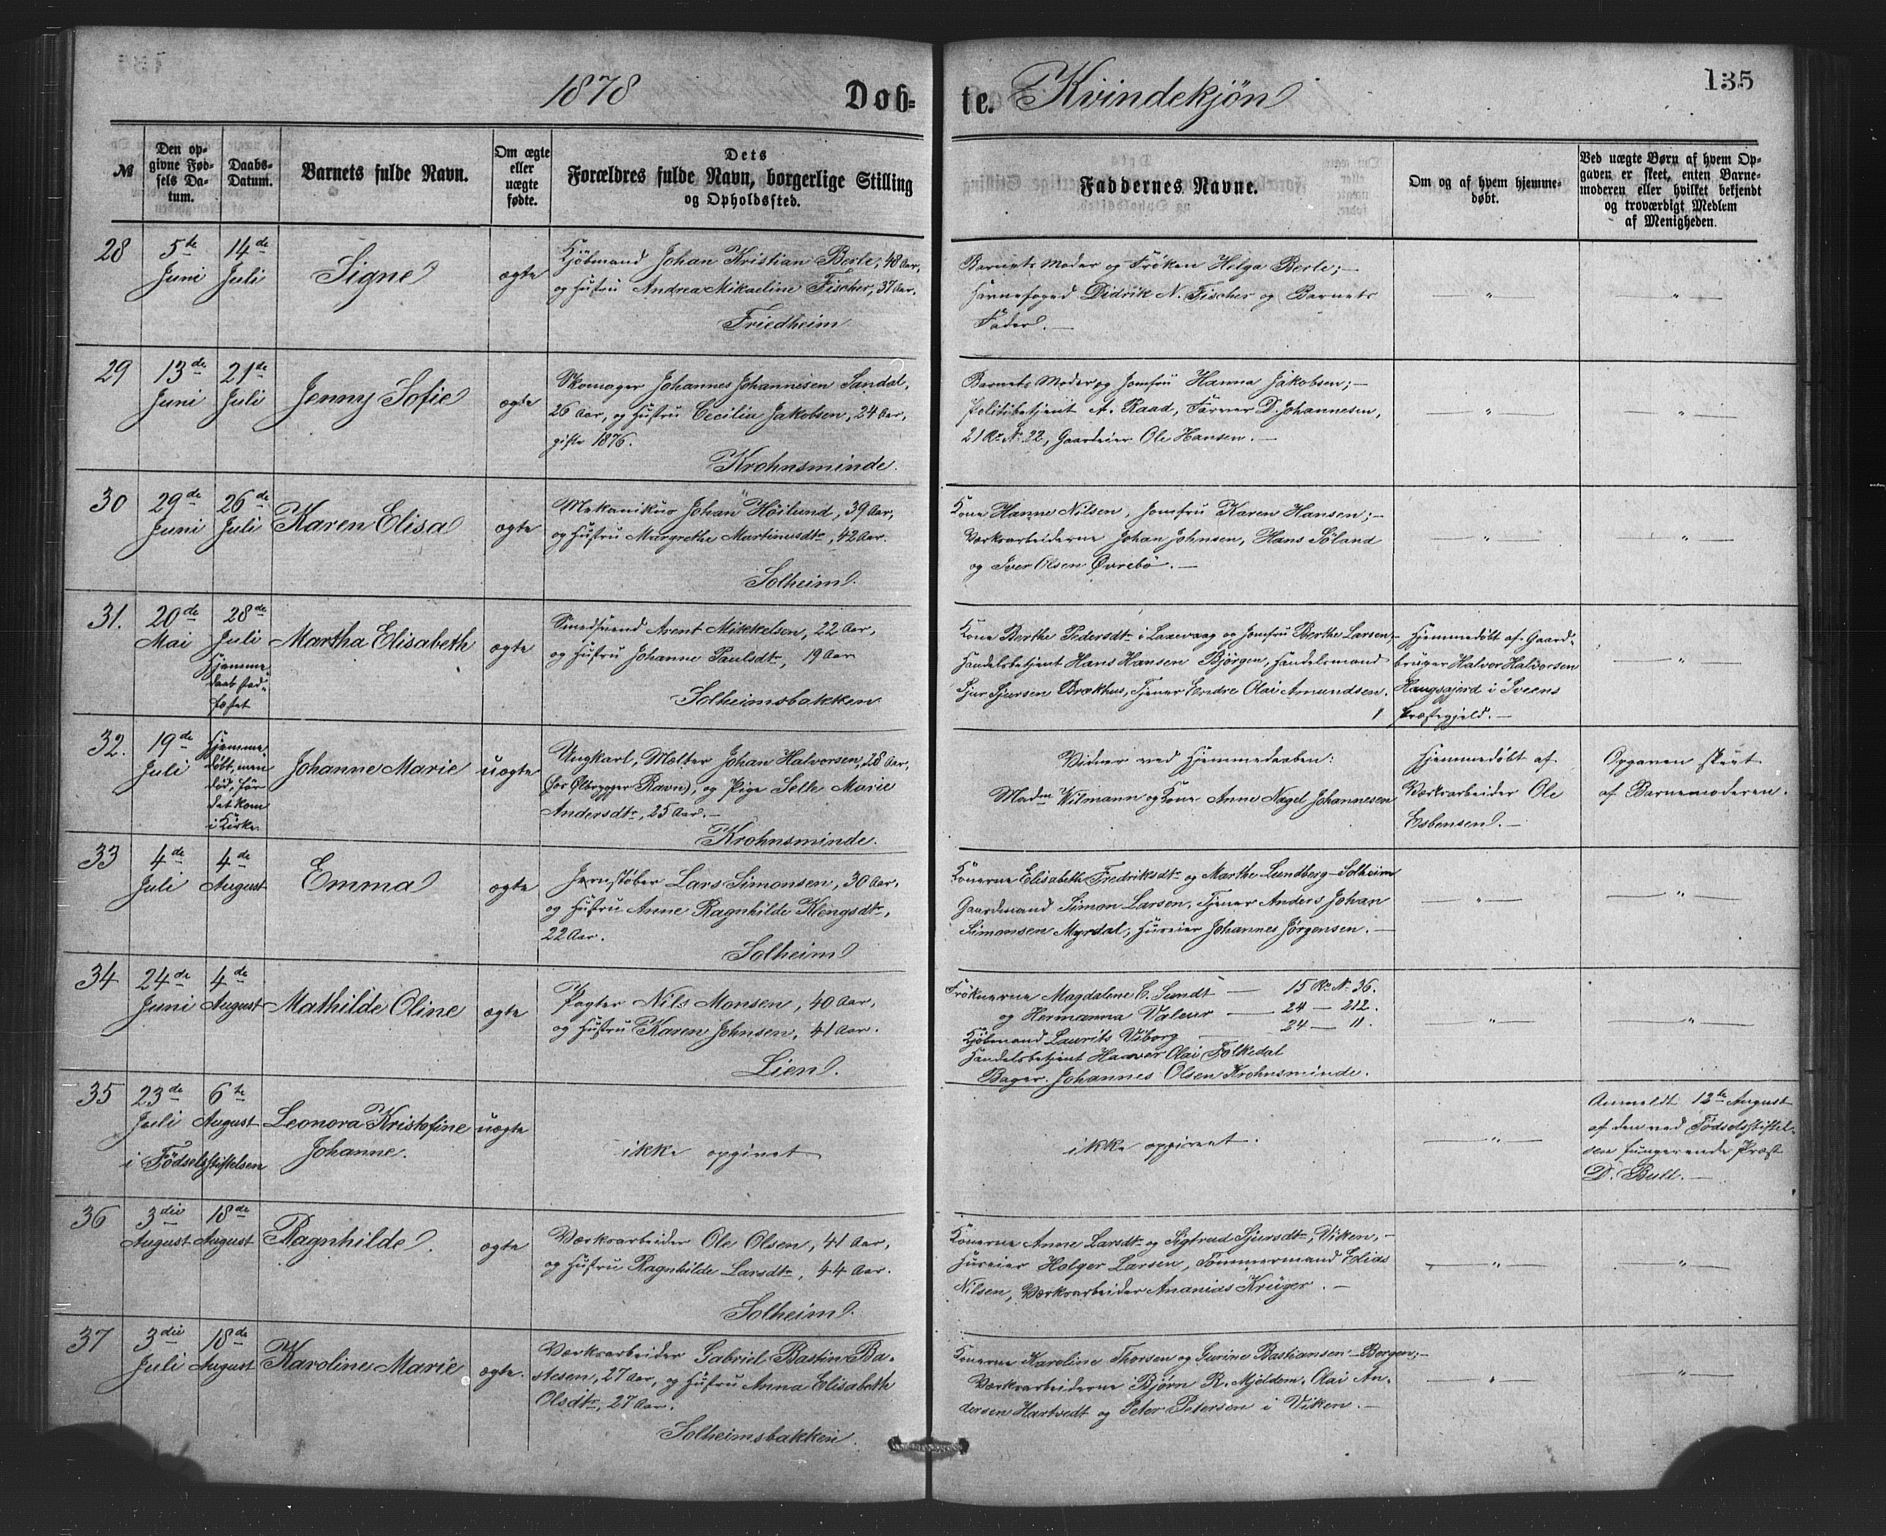 1878 Døb-
te. Kvindekjøn
135
№
Den op-
givne Fød-
sels Da-
tum.
Daabs-
Datum.
Barnets fulde Navn.
Om ægte
eller
uægte
fødte.
Dets
Forældres fulde Navn, borgerlige Stilling
og Opholdssted.
Faddernes Navne.
Om og af hvem hjemme-
døbt.
Ved uægte Børn af hvem Op-
gaven er skeet, enten Barne-
moderen eller hvilket bekjendt
og troværdigt Medlem
af Menigheden.
28
5te
Juni
14de
Juli
Signe
ægte
Kjøbmand Johan Kristian Berle, 48 Aar,
og Hustru Andrea Mikaeline Fischer, 37 Aar.
Friedheim
Barnets Moder og Frøken Helga Berle;—
Havnefoged Didrik N. Fischer og Barnets
Fader.—
— " —
— " —
29
13de
Juni
21de
Juli
Jenny Sofie
ægte
Skomager Johannes Johannesen Sandal,
26 Aar, og Hustru Cecilia Jakobsen, 24 Aar,
gifte 1876.
Krohnsminde.
Barnets Moder og Jomfru Hanna Jakobsen;—
Politibetjent A. Raad, Farver D. Johannesen,
21 Ro. N. 22, Gaardeier Ole Hansen.—
— " —
— " —
30
29de
Juni
26de
Juli
Karen Elisa
ægte
Mekanikus Johan Höilund, 39 Aar,
og Hustru Margrethe Martinusdtr, 42 Aar.
Solheim.
Kone Hanne Nilsen, Jomfru Karen Hansen;—
Værksarbeiderne Johan Johnsen, Hans Söland
og Iver Olsen Øvrebö.—
— " —
— " —
31.
20de
Mai
28de
Juli
Hjemme-
daab stad-
fæstet
Martha Elisabeth
ægte
Smedsvend Arent Mikkelsen, 22 Aar,
og Hustru Johanne Paulsdtr, 19 Aar
Solheimsbakken
Kone Berthe Pedersdtr i Laxevaag og Jomfru Berthe Larsen
Handelsbetjent Hans Hansen Björgen, Handelsmand
Sjur Sjursen Brækhus, Tjener Endre Olai Amundsen.
Hjemmedøbt af Gaard-
bruger Halvor Halvorsen
Haugsgjerd i Sveens
Præstegjeld.—
— " —
32.
19de
Juli
Hjemme
døbt, men
død, før
det kom
i Kirke
Johanne Marie
uægte
Ungkarl, Melter Johan Halvorsen, 28 Aar,
(hos Ølbrygger Ravn), og Pige Selle Marie
Andersdtr, 25 Aar.—
Krohnsminde.
Vidner ved Hjemmedaaben:
Madm Wilmann og Kone Anne Nagel Johannesen
Hjemmedøbt af
Værksarbeider Ole
Esbensen.—
Opgaven skeet
af Barnemoderen.
33
4de
Juli
4de
August
Emma
ægte
Jernstøber Lars Simonsen, 30 Aar,
og Hustru Anne Ragnhilde Klengsdtr,
22 Aar.
Solheim
Konerne Elisabeth Fredriksdtr og Marthe Lundberg-Solheim
Gaardmand Simon Larsen, Tjener Anders Johan
Simonsen Myrdal, Huseier Johannes Jørgensen.—
— " —
— " —
34
24de
Juni
4de
August
Mathilde Oline
ægte
Pagter Nils Monsen, 40 Aar,
og Hustru Karen Johnsen, 41 Aar.
Lien.
Frøknerne Magdalene C. Sundt — 15 Ro. N. 36.
og Hermanna Valeur — 24 — 212.
Kjøbmand Laurits Viborg — 24 — 11.
Handelsbetjent Haaver Olai Folkedal
Bager Johannes Olsen Krohnsminde.
— " —
— " —
35
23de
Juli
6te
August
i Fødselsstiftelsen
Leonora Kristofine
Johanne.
uægte
ikke opgivet
ikke opgivet.
— " —
Anmeldt 12te August
af den ved Fødselsstiftel-
sen fungerende Præst
D. Bull.—
36
3die
August
18de
August
Ragnhilde
ægte
Værksarbeider Ole Olsen, 41 Aar,
og Hustru Ragnhilde Larsdtr, 44 Aar.
Solheim.
Konerne Anne Larsdtr og Sigtrud Sjursdtr, Viken,—
Huseier Holger Larsen, Tømmermand Elias
Nilsen, Værksarbeider Ananias Krüger.—
— " —
— " —
37
3die
Juli
18de
August
Karoline Marie
ægte.
Værksarbeider Gabriel Bastin Ba-
stesen, 27 Aar, og Hustru Anna Elisabeth
Olsdtr, 27 Aar.
Solheimsbakken.
Konerne Karoline Thorsen og Surine Bastiansen - Bergen;—
Værksarbeiderne Bjørn R. Mjeldem, Olai An-
dersen Hartvedt og Peter Petersen i Viken.—
— " —
— " —